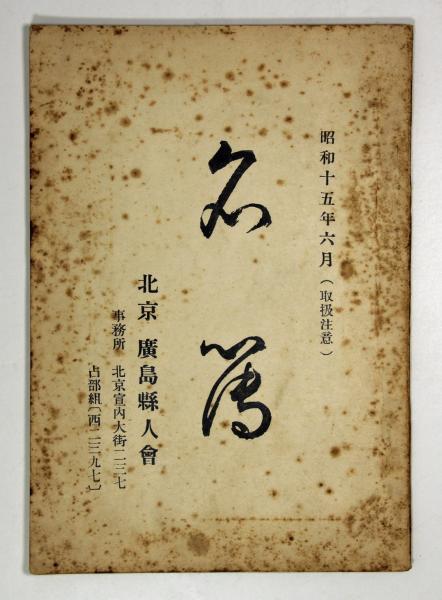 昭和十五年六月(取扱注意)
名簿
北京 廣島縣人會
事務所 北京宣內大街二三七
占部組〔西二三九七〕